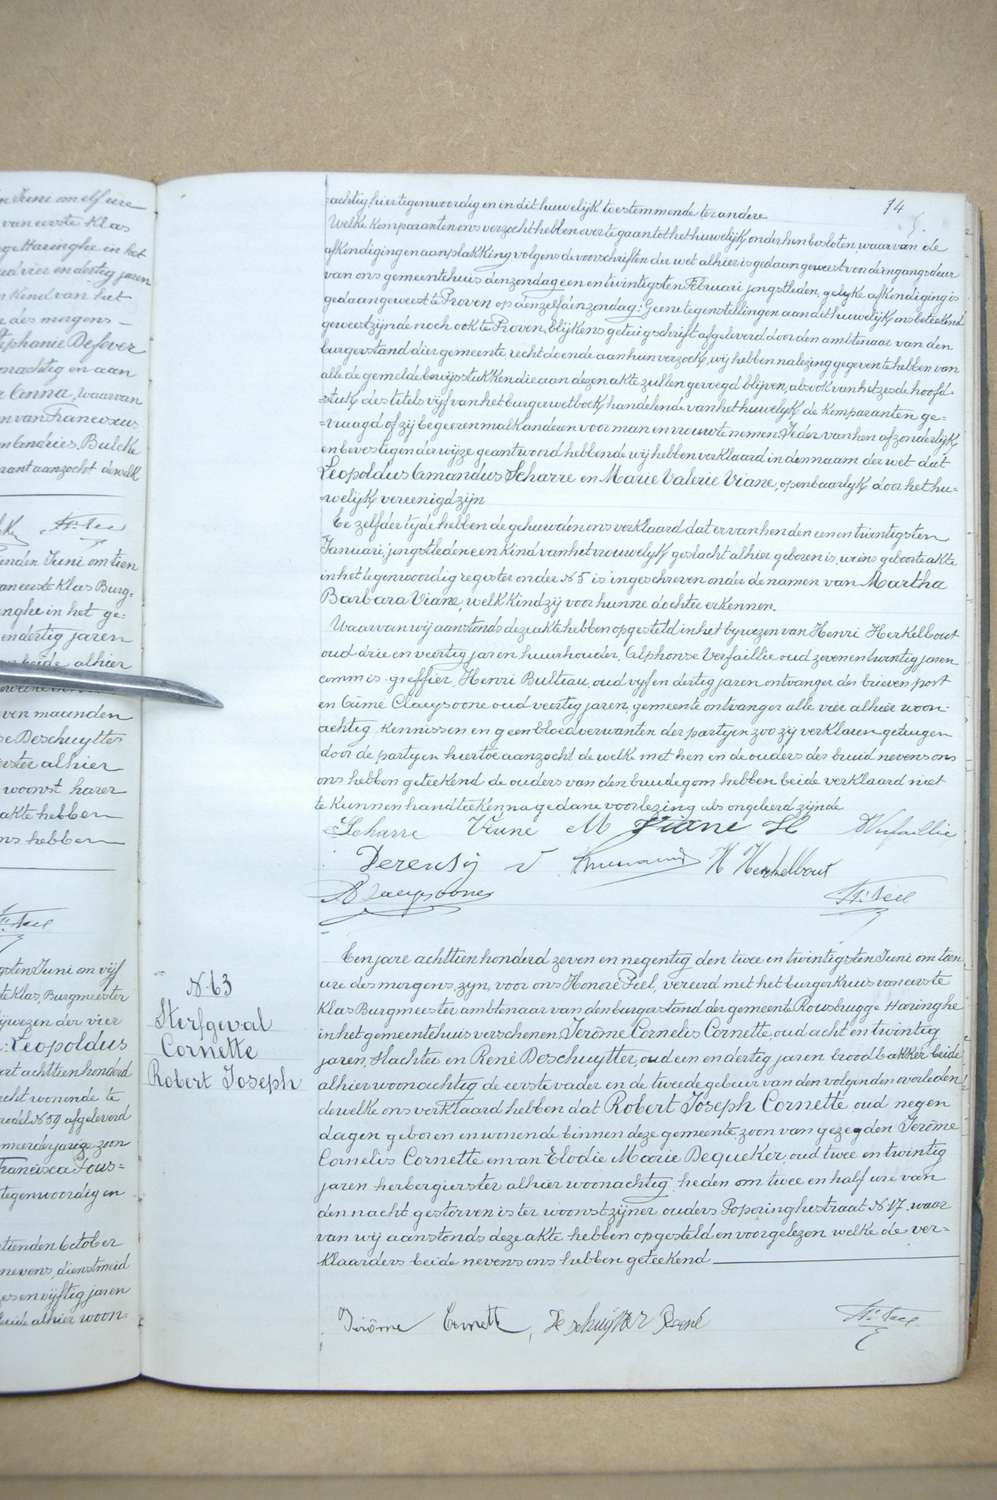 n Juni om elf ure
van eerste Klas
ge Haringhe in het
vier en dertig jaren
n Kind van het
e des morgens
Stephanie Defever
nachtig en aan
Anna, waarvan
n van Franciscus
Bulcke
aanzocht dewelk
enden Juni om tien
van eerste Klas Burg=
nghe in het ge=
en dertig jaren
beide alhier
ven maanden
e Deschuytter
ster alhier
woonst harer
akte hebben
ns hebben
gsten Juni om vijf
te Klas, Burgmeester
ijwezen der vier
: Leopoldus
art achttien honderd
echt wonende te
N 59 afgeleverd
meerderjarige zoon
Francisca Lous=
tegenwoordig en
tienden October
nevens, dienstmeid
es en vijftig jaren
beide alhier woon=
14
achtig hier tegenwoordig en in dit huwelijk toestemmende ter andere
Welke komparanten ons verzocht hebben over te gaan tot het huwelijk onder hen besloten, waarvan de
afkondigingen aanplakking volgens de voorschriften der wet alhier is gedaan geweest voor den ingangsdeur
van ons gemeentehuis den zondag een en twintigsten Februari jongstleden, gelyke afkondiging is
gedaan geweest te Proven op denzelfden zondag: Geene tegenstellingen aan dit huwelijk ons beteekend
geweest zijnde noch ook te Proven, blijkens getuigschrift afgeleverd door den ambtenaar van den
burgerstand dier gemeente, recht doende aan hun verzoek, wij hebben na lezing gegeven te hebben van
alle de gemelde bewijsstukken die aan dezen akte zullen gevoegd blijven, als ook van het zesde hoofd=
=stuk des titels vijf van het burger wetboek handelende van het huwelyk de komparanten ge=
=vraagd of zij begeeren malkanderen voor man en vrouw te nemen. Ieder van hen afzonderlijk
en bevestigender wijze geantwoord hebbende wij hebben verklaard in den naam der wet dat
Leopoldus Amandus Scharre en Marie Valerie Viane, openbaarlyk door het hu=
=welijk vereenigd zijn
Te zelfder tyde hebben de gehuwden ons verklaard dat er van hen den eenen twintigsten
Januari jongstleden een kind van het vrouwelyk geslacht alhier geboren is, wiens geboorteakte
in het tegenwoordig register onder N 5 is ingeschreven onder de namen van Martha
Barbara Viane, welk kind zij voor hunne dochter erkennen.
Waarvan wij aanstonds deze akte hebben opgesteld in het bijwezen van Henri Herkelbout
oud drie en veertig jaren huurhouder, Alphonse Verfaillie oud zeven en twintig jaren
commis-greffier, Henri Bulteau, oud vyf en dertig jaren ontvanger der brieven post
en Aimé Claeysoone oud veertig jaren, gemeente ontvanger alle vier alhier woon=
achtig kennissen en geen bloedverwanten der partyen zoo zij verklaren getuigen
door de partyen hiertoe aanzocht de welk met hen en de ouders der bruid nevens ons
ons hebben geteekend de ouders van den bruidegom hebben beide verklaard niet
te kunnen handteekenna gedane voorlezing als ongeleerd zijnde
Scharre Viane M Viane H AVerfaillie
H Herkelbout
A Claeysoone Hré Feel
N 63
Sterfgeval
Cornette
Robert Joseph
Een jare achttien honderd zeven en negentig den twee en twintigsten Juni om tien
ure des morgens, zyn, voor ons Honoré Feel, vereerd met het burgerkruis van eerste
Klas Burgmeester ambtenaar van den burgerstand der gemeente Rousbrugge Haringhe
in het gemeentehuis verschenen Jerôme Cornelis Cornette, oud acht en twintig
jaren, slachter en René Deschuytter, oud een en dertig jaren broodbakker beide
alhier woonachtig de eerste vader en de tweede gebuur van den volgenden overleden
dewelke ons verklaard hebben dat Robert Joseph Cornette oud negen
dagen geboren en wonende binnen deze gemeente zoon van gezegden Jerôme
Cornelis Cornette en van Elodie Marie Dequeker, oud twee en twintig
jaren herbergierster alhier woonachtig, heden om twee en half ure van
den nacht gestorven is ter woonst zijner ouders Poperinghestraat N 17. waar
van wij aanstonds deze akte hebben opgesteld en voorgelezen welke de ver=
klaarders beide nevens ons hebben geteekend
Jérôme Cornette, Deschuytter René Hré Feel